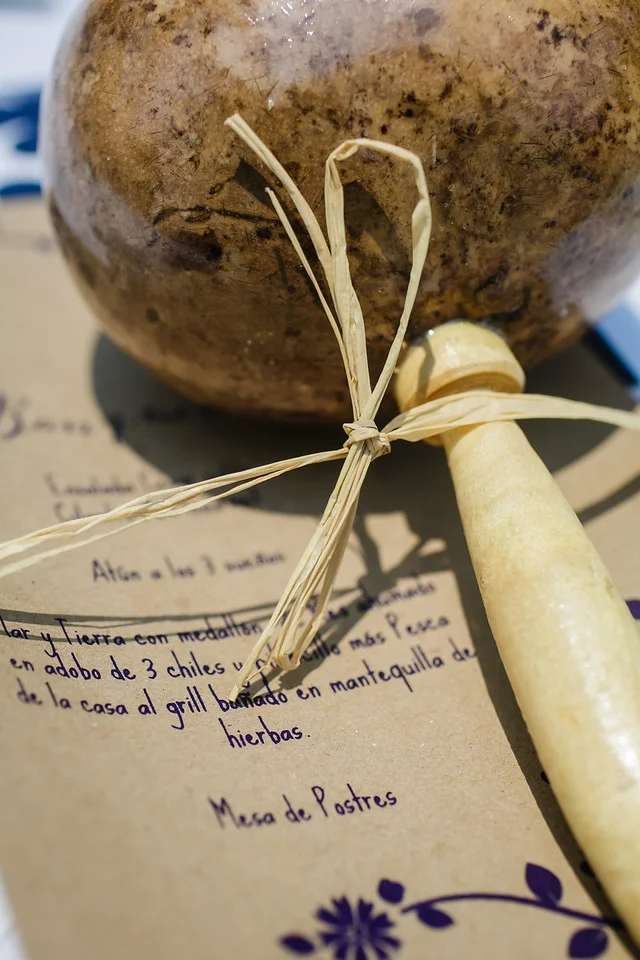 Ensalada
Atún a los 3
lar y Tierra con medallón ahumado
en adobo de 3 chiles y más Pesca
de la casa al grill bañado en mantequilla de
hierbas.
Mesa de Postres